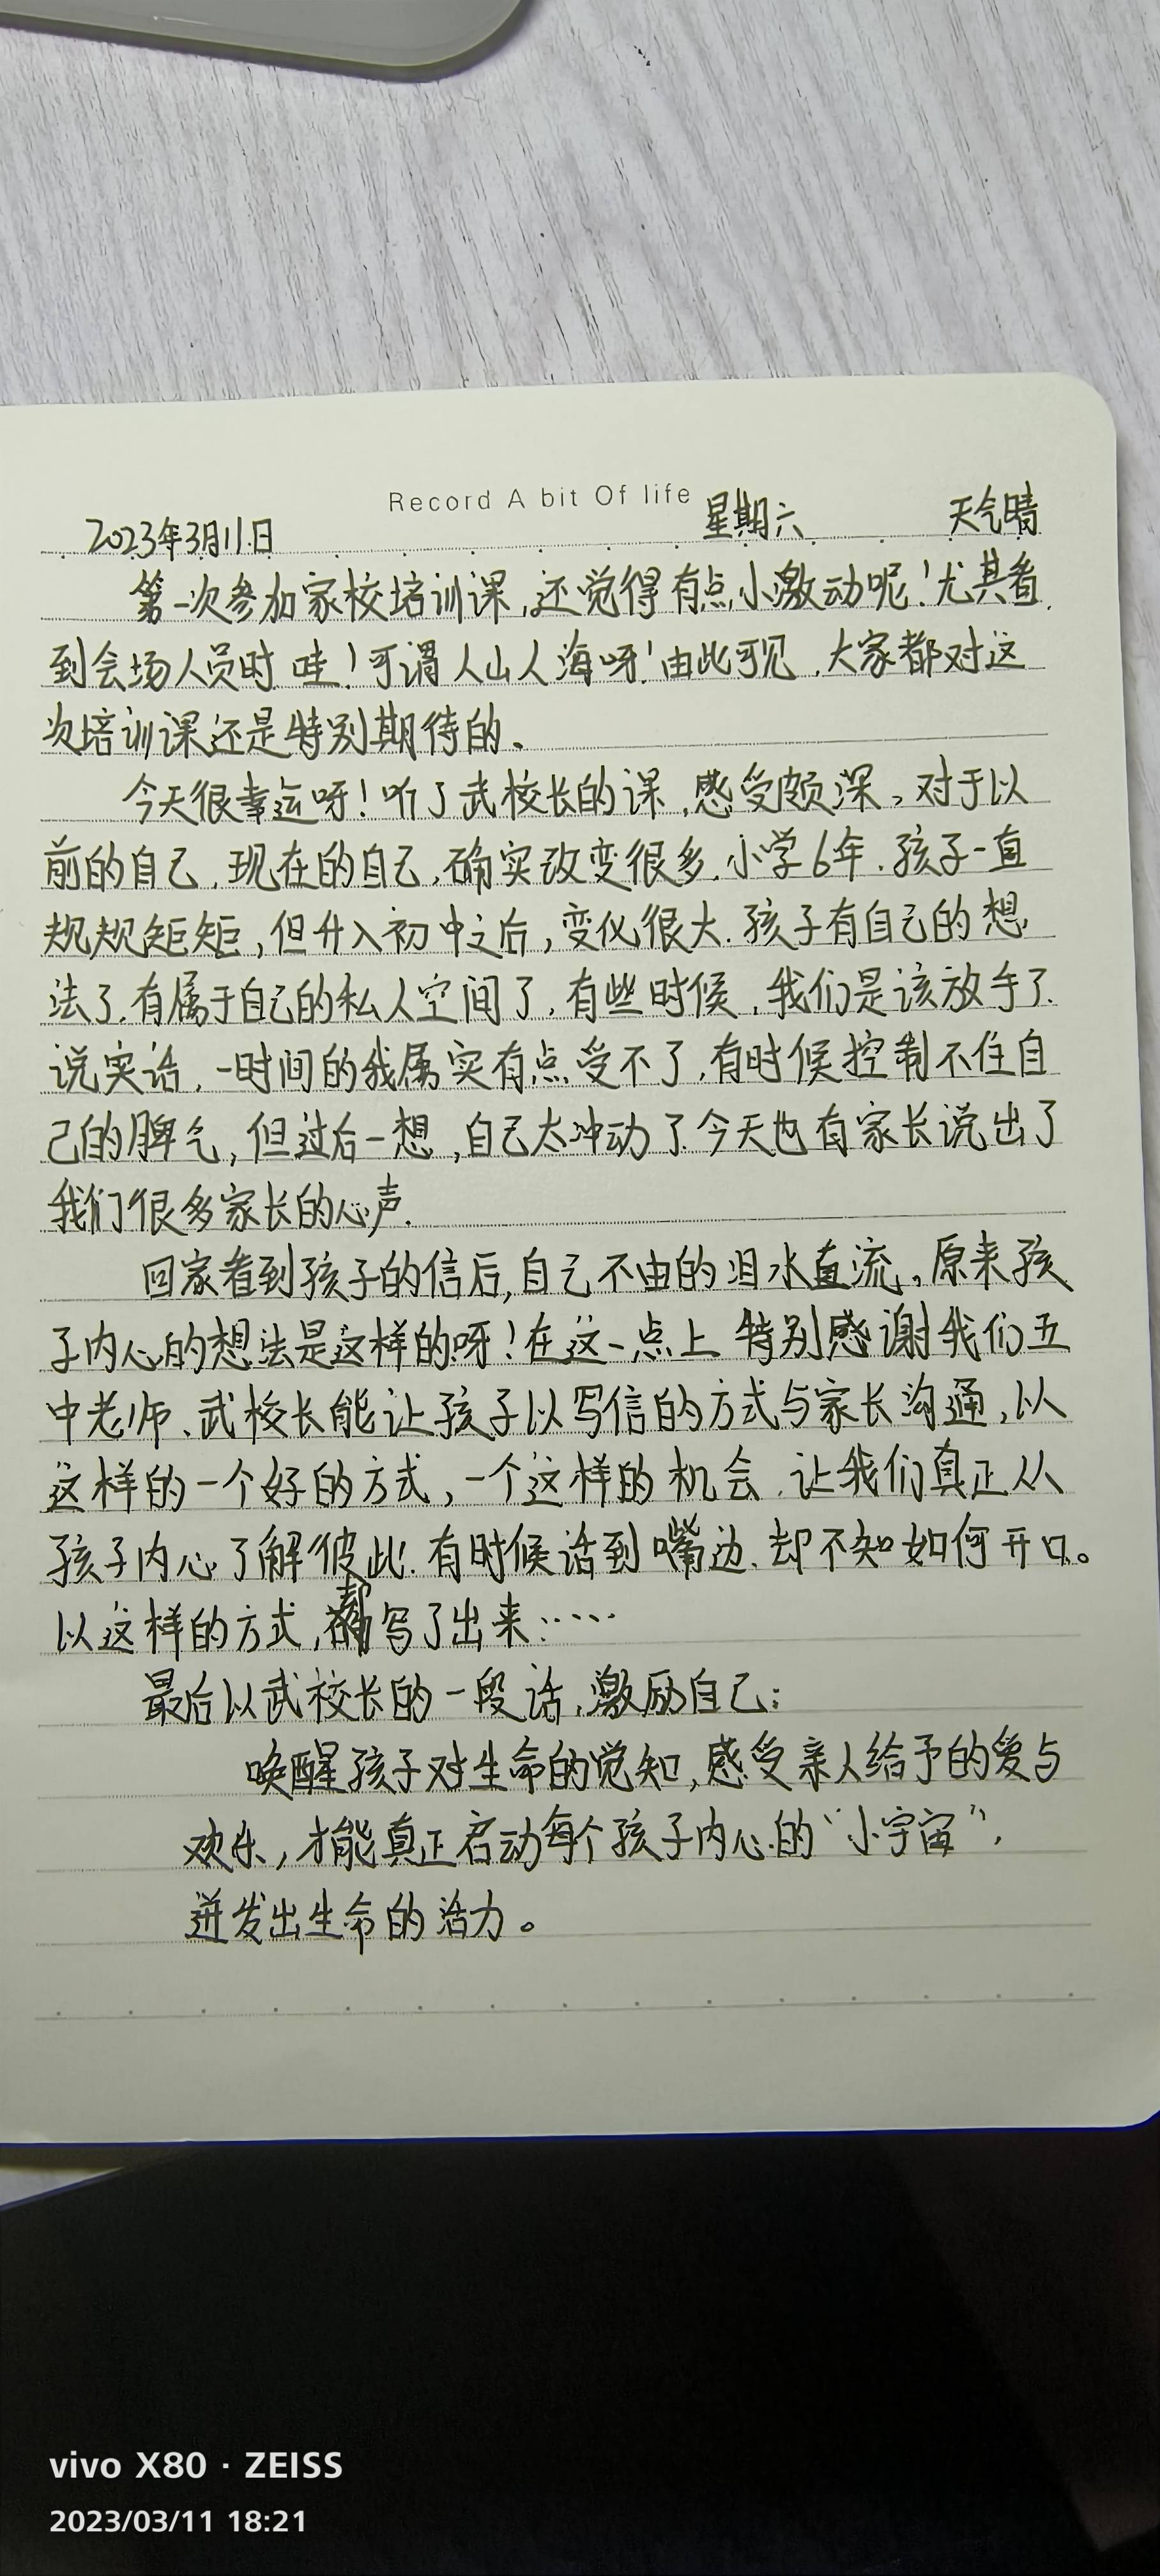 Record A bit Of life
2023年3月11日 星期六 天气晴
第一次参加家校培训课,还觉得有点小激动呢!尤其看
到会场人员时 哇!可谓人山人海呀!由此可见,大家都对这
次培训课还是特别期待的。
今天很幸运呀!听了武校长的课,感受颇深,对于以
前的自己,现在的自己,确实改变很多.小学6年.孩子一直
规规矩矩,但升入初中之后,变化很大.孩子有自己的想
法了.有属于自己的私人空间了,有些时候,我们是该放手了.
说实话,一时间的我属实有点受不了,有时候控制不住自
己的脾气,但过后一想,自己太冲动了.今天也有家长说出了
我们很多家长的心声.
回家看到孩子的信后,自己不由的泪水直流,原来孩
子内心的想法是这样的呀!在这一点上 特别感谢我们五
中老师、武校长能让孩子以写信的方式与家长沟通,以
这样的一个好的方式,一个这样的机会.让我们真正从
孩子内心了解彼此.有时候话到嘴边.却不知如何开口。
以这样的方式,都写了出来……
最后以武校长的一段话,激励自己:
唤醒孩子对生命的觉知,感受亲人给予的爱与
欢乐,才能真正启动每个孩子内心的“小宇宙”,
迸发出生命的活力。
vivo X80 · ZEISS
2023/03/11 18:21